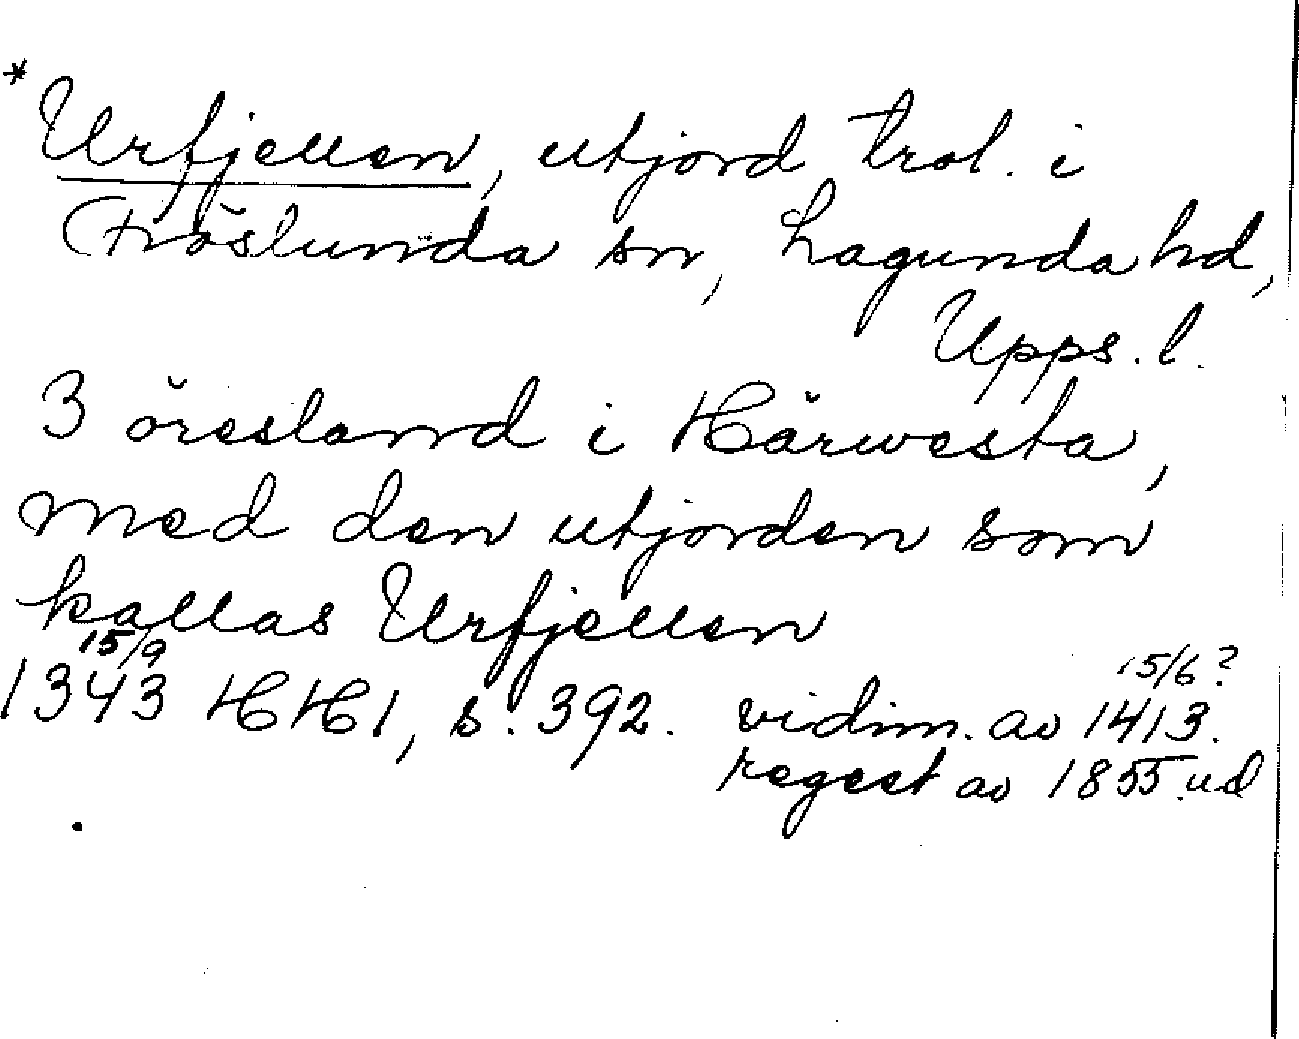 *Urfjellen, utjord trol. i
Fröslunda sn, Lagunda hd,
Upps. l.
3 öresland i Härwesta,
med den utjorden som
kallas Urfjellen
15/9 15/6?
1343 HH1, s. 392. vidim. av 1413.
regest av 1855